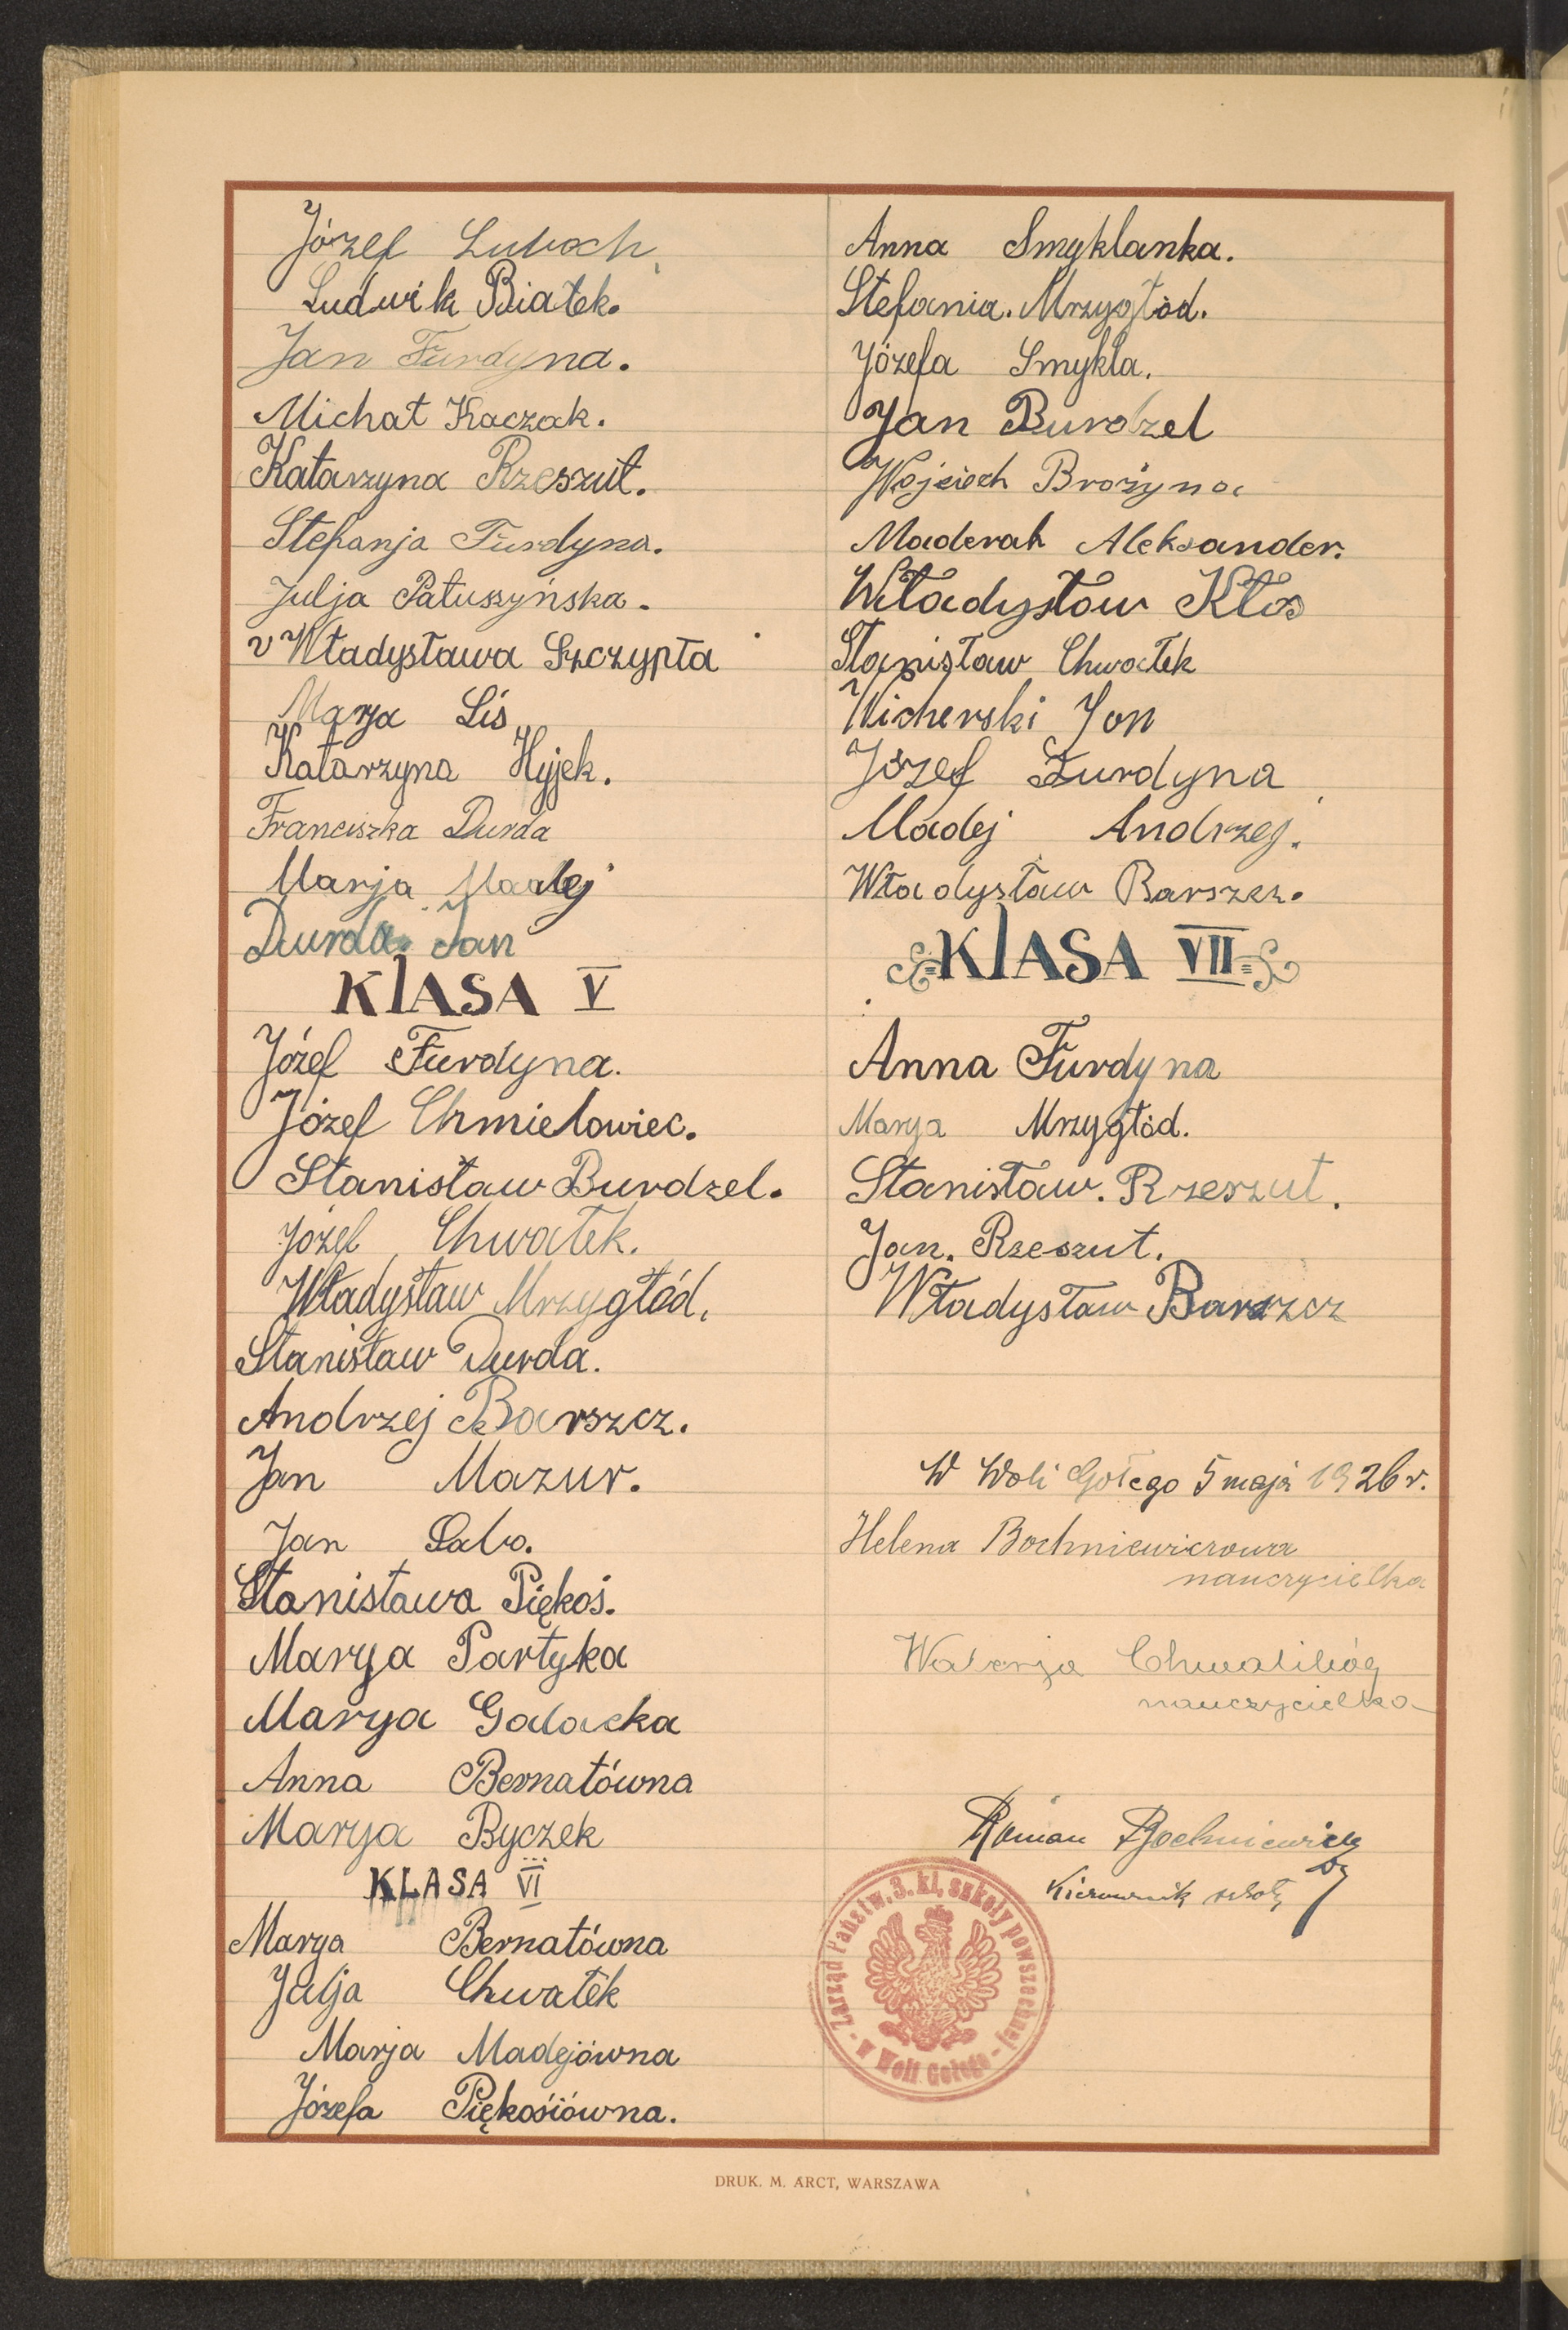 Józef Luboch
Ludwik Białek.
Jan Furdyna.
Michał Kaczak.
Katarzyna Rzeszut.
Stefanja Furdyna.
Julja Patuszyńska.
Władysława Szczypta
Marja Lis
Katarzyna Hyjek.
Franciszka Durda
Marja Madej
Durda Jan
KlASA V
Józef Furdyna.
Józef Chmielowiec.
Stanisław Burdzel.
Józef Chwałek.
Władysław Mrzygłód.
Stanisław Durda.
Andrzej Barszcz.
Jan Mazur.
Jan
Stanisława Piękoś.
Marya Partyka
Marya Galacka
Anna Bernatówna
Marya Byczek
KLASA VI
Marya Bernatówna
Julja Chwałek
Marja Madejówna
Józefa Piękosiówna.
Anna Smyklanka.
Stefania. Mrzygłód.
Józefa Smykla.
Jan Burdzel
Wojciech Brożyna
Maderak Aleksander.
Władysław Kłos
Stanisław Chwałek
Wicherski Jan
Józef Furdyna
Madej Andrzej.
Władysław Barszcz.
KlASA VII
Anna Furdyna
Marya Mrzygłód.
Stanisław. Rzeszut.
Jan. Rzeszut.
Władysław Barszcz
W Woli Gołego 5 maja 1926 r.
Helena Bochniewiczowa
nauczycielka
Walerja Chwalibóg
nauczycielka
Roman Bochniewicz
Kierownik szkoły
Zarząd Państw. 3. kl. szkoły powszechnej
w Woli Gołego
DRUK. M. ARCT, WARSZAWA